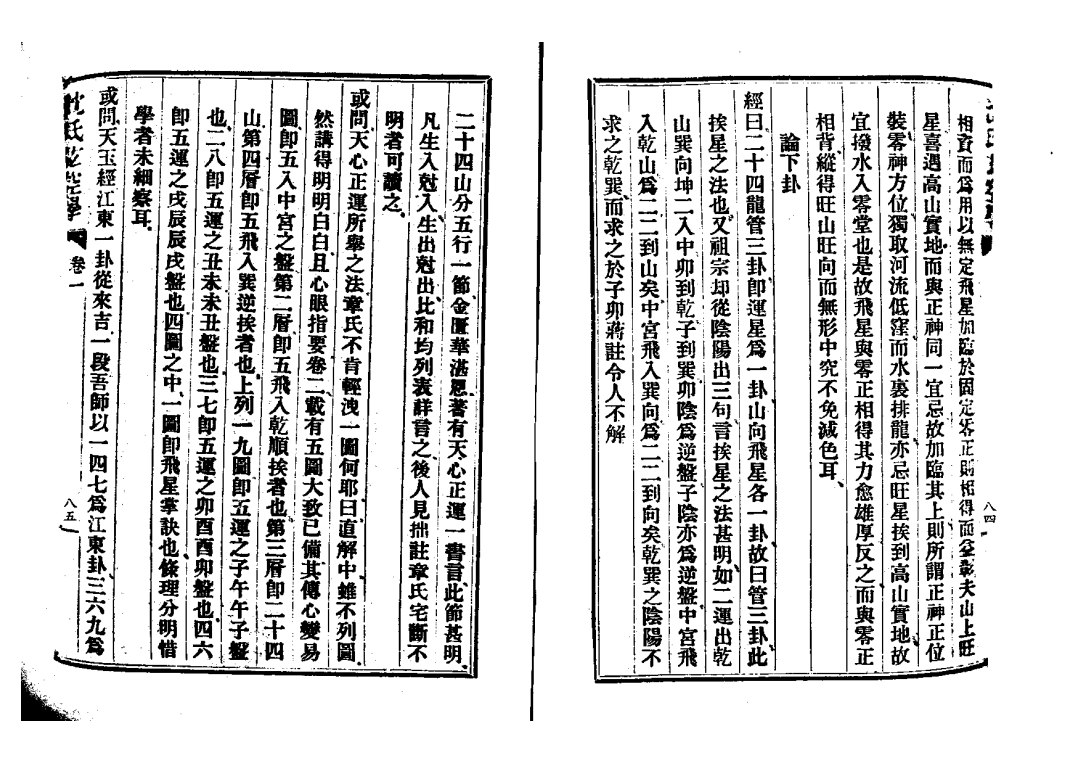 相資而爲用以無定飛星加臨於固定零正則相得而益彰夫山上旺
星喜遇高山實地而與正神同一宜忌故加臨其上則所謂正神正位
裝零神方位獨取河流低窪而水裏排龍亦忌旺星挨到高山實地故
宜撥水入零堂也是故飛星與零正相得其力愈雄厚反之而與零正
相背縱得旺山旺向而無形中究不免減色耳、
論下卦
經曰、二十四龍管三卦、卽運星爲一卦、山向飛星各一卦、故曰管三卦、此
挨星之法也、又祖宗却從陰陽出三句、言挨星之法甚明、如二運出乾
山巽向、坤二入中、卯到乾、子到巽、卯陰爲逆盤、子陰亦爲逆盤、中宮飛
入乾山爲二、二到山矣、中宮飛入巽向爲二、二到向矣、乾巽之陰陽、不
求之乾巽、而求之於子卯、蔣註令人不解
八四
二十四山分五行一節、金匱華湛恩著有天心正運一書、言此節甚明、
凡生入尅入、生出尅出、比和均列表詳言之、後人見拙註章氏宅斷不
明者可讀之、
或問、天心正運所舉之法、章氏不肯輕洩一圖何耶、曰、直解中雖不列圖、
然講得明明白白、且心眼指要卷二、載有五圖、大致已備、其傳心變易
圖、卽五入中宮之盤、第二層卽五飛入乾順挨者也、第三層卽二十四
山、第四層卽五飛入巽逆挨者也、上列一九圖、卽五運之子午午子盤
也、二八卽五運之丑未未丑盤也、三七卽五運之卯酉酉卯盤也、四六
卽五運之戌辰辰戌盤也、四圖之中、一圖卽飛星掌訣也、條理分明、惜
學者未細察耳、
或問、天玉經江東一卦從來吉一段、吾師以一四七爲江東卦、三六九爲
沈氏玄空學 卷一
八五